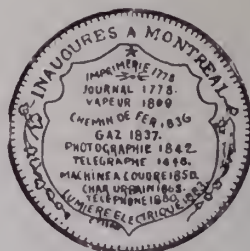 INAUGURES A MONTREAL
IMPRIMERIE 1778
JOURNAL 1778.
VAPEUR 1809
CHEMIN DE FER, 1836
GAZ 1837.
PHOTOGRAPHIE 1842.
TELEGRAPHE 1848.
MACHINE A COUDRE 1850.
CHAR URBAIN 1863.
TÉLÉPHONE 1880.
LUMIERE ELECTRIQUE 1883.